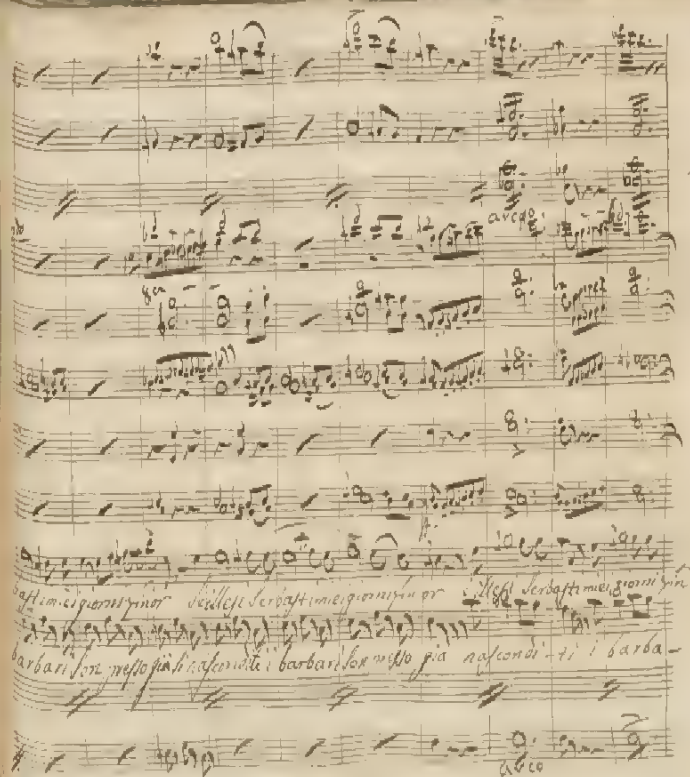 arco
8va
basti miei giorni finor se illesi serbasti miei giorni finor illesi serbasti miei giorni fin
barbari son presso già nascondi-ti i barbari son presso già nascondi-ti i barba-
arco